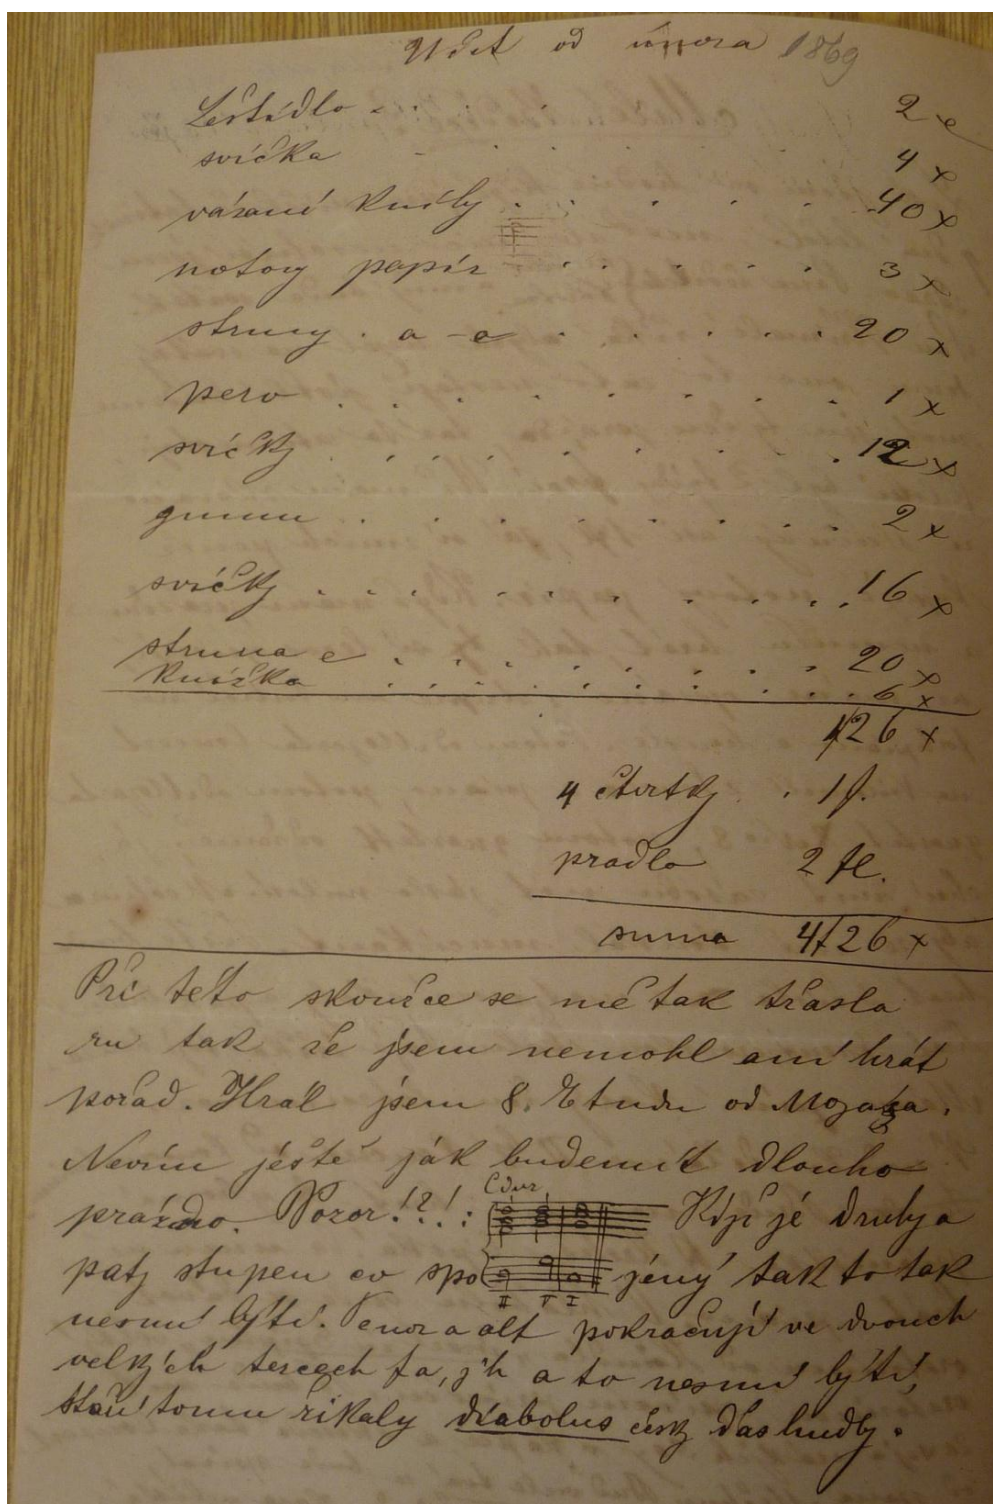 Učet od února 1869
Leštidlo . . . . 2 x
svíčka - . . . . 4 x
vázaní knihy . . . . . 40 x
notovy papír . . . . . 3 x
struny . a - e . . . . . 20 x
pero . . . . . . . . 1 x
svíčky . . . . . . . . 12 x
gummu . . . . . . . . 2 x
svíčky . . . . . . . . . 16 x
struna e . . . . . . . . 20 x
knižka . . . . . . . . . 6 x
126 x
4 čtvrtky . 1 f.
pradlo 2 fl.
suma 4/26 x
Při této skoušce se mě tak třasla
ru tak že jsem nemohl aní hrát
pořad. Hrál jsem 8. Etudu od Mozarta.
Nevím jéště ják budemít dlouho
prázdno. Pozor!?!:
C dur
Kdýž jé druhy a
patý stupen co spo jéný tak to tak
II V I
nesmí býti. Tenor a alt pokračují ve dvouch
velkých tercech fa, g h a to nesmí býtí,
Staří tomu řikaly diabolus česky ďas hudby.